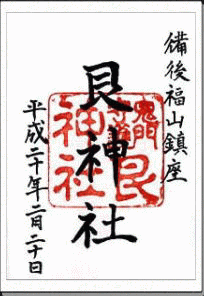 備後福山鎮座
艮神社
鬼門
守護
艮
神社
平成二十年二月二十日